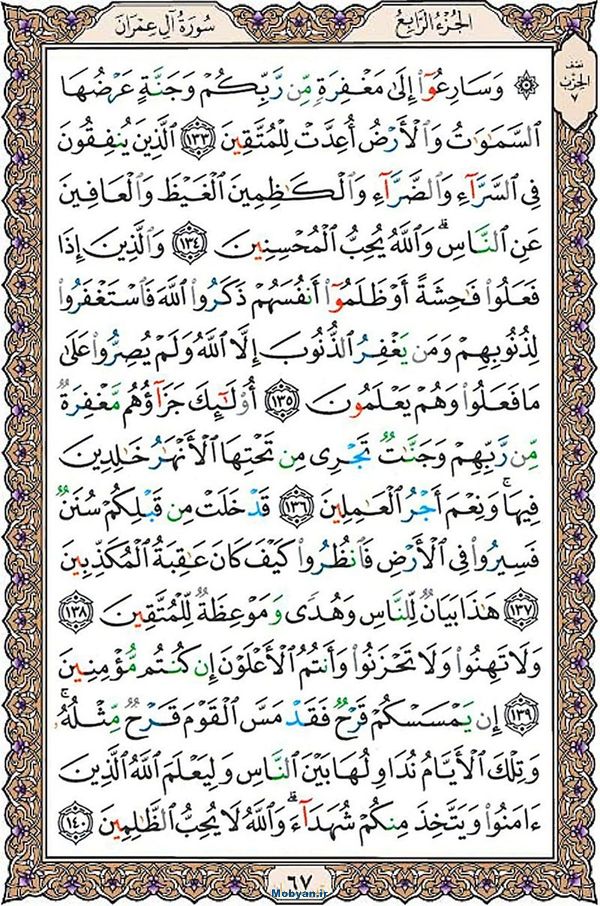 الجزء الرابع
سورة آل عمران
نصف
الحزب
٧
۞ وَسَارِعُوٓا۟ إِلَىٰ مَغْفِرَةٍ مِّن رَّبِّكُمْ وَجَنَّةٍ عَرْضُهَا
ٱلسَّمَـٰوَٰتُ وَٱلْأَرْضُ أُعِدَّتْ لِلْمُتَّقِينَ ١٣٣ ٱلَّذِينَ يُنفِقُونَ
فِى ٱلسَّرَّآءِ وَٱلضَّرَّآءِ وَٱلْكَـٰظِمِينَ ٱلْغَيْظَ وَٱلْعَافِينَ
عَنِ ٱلنَّاسِ ۗ وَٱللَّهُ يُحِبُّ ٱلْمُحْسِنِينَ ١٣٤ وَٱلَّذِينَ إِذَا
فَعَلُوا۟ فَـٰحِشَةً أَوْ ظَلَمُوٓا۟ أَنفُسَهُمْ ذَكَرُوا۟ ٱللَّهَ فَٱسْتَغْفَرُوا۟
لِذُنُوبِهِمْ وَمَن يَغْفِرُ ٱلذُّنُوبَ إِلَّا ٱللَّهُ وَلَمْ يُصِرُّوا۟ عَلَىٰ
مَا فَعَلُوا۟ وَهُمْ يَعْلَمُونَ ١٣٥ أُو۟لَـٰٓئِكَ جَزَآؤُهُم مَّغْفِرَةٌ
مِّن رَّبِّهِمْ وَجَنَّـٰتٌ تَجْرِى مِن تَحْتِهَا ٱلْأَنْهَـٰرُ خَـٰلِدِينَ
فِيهَا ۚ وَنِعْمَ أَجْرُ ٱلْعَـٰمِلِينَ ١٣٦ قَدْ خَلَتْ مِن قَبْلِكُمْ سُنَنٌ
فَسِيرُوا۟ فِى ٱلْأَرْضِ فَٱنظُرُوا۟ كَيْفَ كَانَ عَـٰقِبَةُ ٱلْمُكَذِّبِينَ
١٣٧ هَـٰذَا بَيَانٌ لِّلنَّاسِ وَهُدًى وَمَوْعِظَةٌ لِّلْمُتَّقِينَ ١٣٨
وَلَا تَهِنُوا۟ وَلَا تَحْزَنُوا۟ وَأَنتُمُ ٱلْأَعْلَوْنَ إِن كُنتُم مُّؤْمِنِينَ
١٣٩ إِن يَمْسَسْكُمْ قَرْحٌ فَقَدْ مَسَّ ٱلْقَوْمَ قَرْحٌ مِّثْلُهُۥ ۚ
وَتِلْكَ ٱلْأَيَّامُ نُدَاوِلُهَا بَيْنَ ٱلنَّاسِ وَلِيَعْلَمَ ٱللَّهُ ٱلَّذِينَ
ءَامَنُوا۟ وَيَتَّخِذَ مِنكُمْ شُهَدَآءَ ۗ وَٱللَّهُ لَا يُحِبُّ ٱلظَّـٰلِمِينَ ١٤٠
٦٧
Mobyan.ir